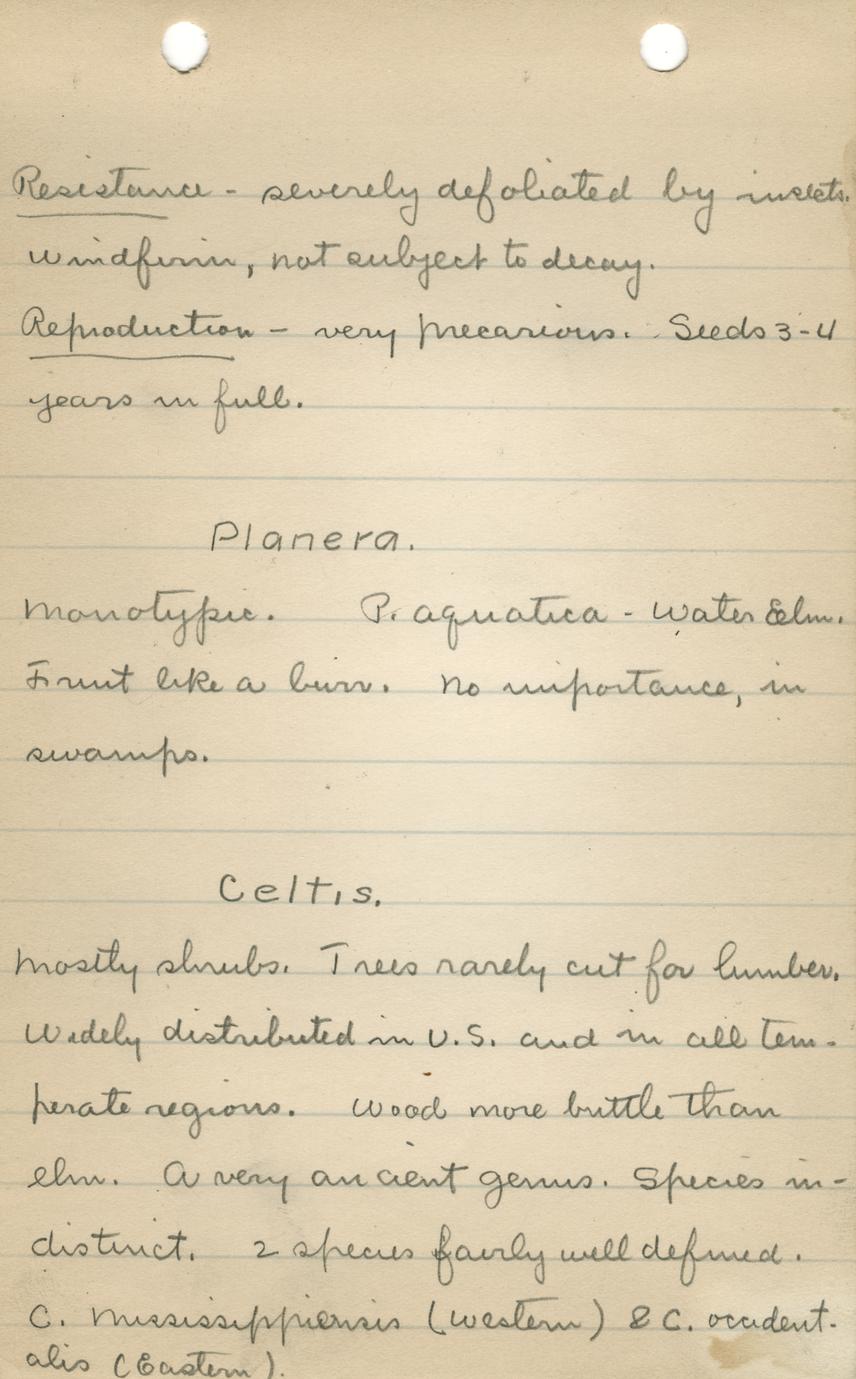 Resistance - severely defoliated by insects.
Windfirm, not subject to decay.
Reproduction - very precarious. Seeds 3-4
years in full.
Planera.
Monotypic. P. aquatica - Water Elm.
Fruit like a burr. No importance, in
swamps.
Celtis.
Mostly shrubs. Trees rarely cut for lumber.
Widely distributed in U.S. and in all tem-
perate regions. Wood more brittle than
elm. A very ancient genus. Species in-
distinct. 2 species fairly well defined.
C. Mississippiensis (Western) & C. occident-
alis (Eastern).